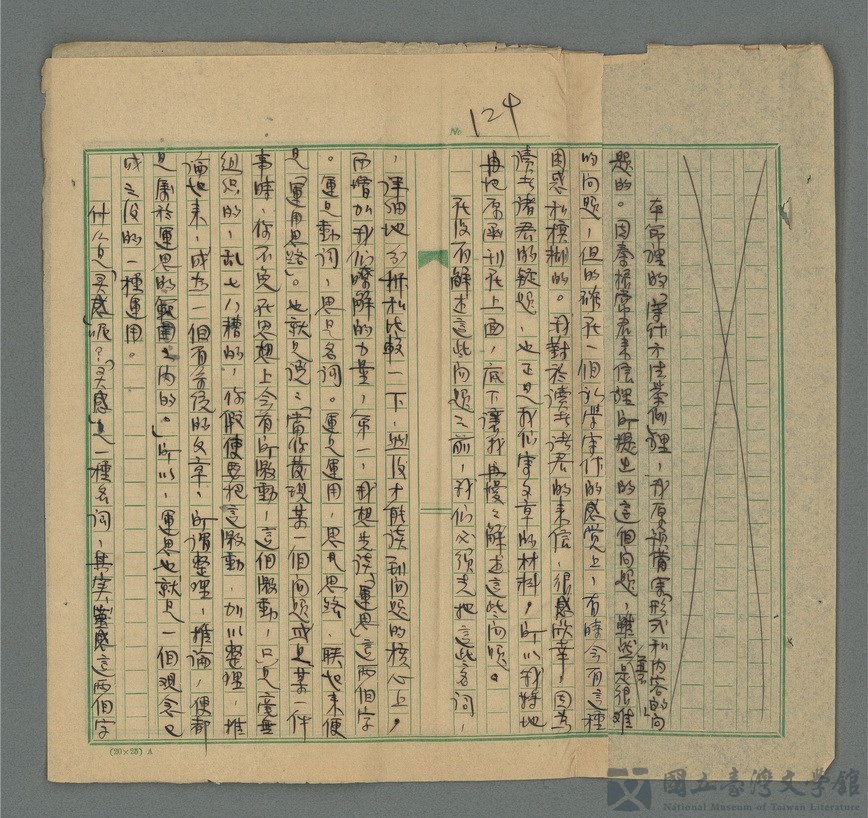 № 124
本部裡的「寫作方法舉例」裡,我原預備寫「形式和內容」的問
題的。因秦振常君來信裡所提出的這個問題,雖然並不是很難
的問題,但的確在一個初學寫作的感覺上,有時会有這種
困惑和模糊的。我對於讀者諸君的來信,很感欣幸,因為
讀者諸君的疑題,也正是我们寫文章的材料。所以我特地
再把原函刊在上面,底下讓我再慢々解述這些问題。
在没有解述這些问題之前,我们必須先把這些名詞,
,詳細地分拆和比較一下,然後才能谈到问題的核心上。
而增加我们瞭解的力量,第一,我想先谈「運思」這兩個字
。運是動詞,思是名詞。運是運用,思是思路、联起來便
是「運用思路」。也就是說:「當你發現某一個问題或是某一件
事時,你不免在思想上会有所激動,這個激動,只是一度無
組织的,乱七八糟的,你假使要把這激動,加以整理,推
論起來,成为一個有前後的文章,所謂整理,推論,便都
是屬於運思的範圍之内的。」所以,運思也就是一個观念已
成之後的一種運用。
什么是「灵感」呢?「灵感」是一種名詞,其实,靈感這兩個字
(20×25) A
國立臺灣文學館
National Museum of Taiwan Literature